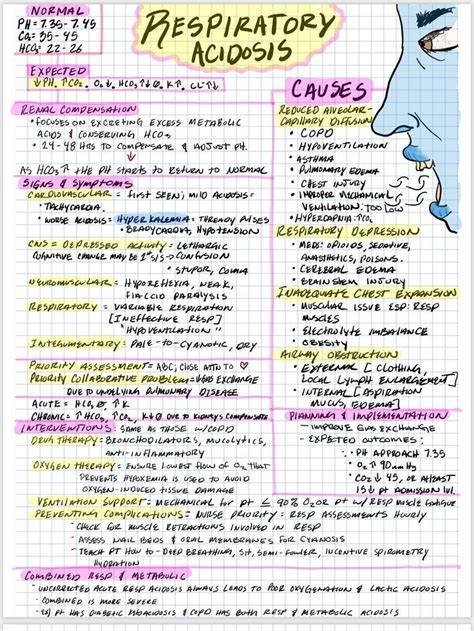 NORMAL
PH = 7.35 - 7.45
CO₂ = 35 - 45
HCO₃ = 22 - 26
RESPIRATORY
ACIDOSIS
EXPECTED
↓PH, ↑CO₂, O₂↓, HCO₃↑↓Ø, K↑, CL⁻↑↓
RENAL COMPENSATION
• FOCUSES ON EXCRETING EXCESS METABOLIC
ACIDS & CONSERVING HCO₃
• 24-48 HRS TO COMPENSATE & ADJUST PH.
AS HCO₃↑ THE PH STARTS TO RETURN TO NORMAL
SIGNS & SYMPTOMS
CARDIOVASCULAR = FIRST SEEN; MILD ACIDOSIS =
TACHYCARDIA.
• WORSE ACIDOSIS = HYPERKALEMIA = THREADY PULSES
• BRADYCARDIA, HYPOTENSION
CNS = DEPRESSED ACTIVITY = LETHARGIC
COGNITIVE CHANGE MAY BE 1ST S/S → CONFUSION
• STUPOR, COMA
NEUROMUSCULAR = HYPOREFLEXIA, WEAK,
FLACCID PARALYSIS
RESPIRATORY = VARIABLE RESPIRATION
[INEFFECTIVE RESP]
"HYPOVENTILATION"
INTEGUMENTARY = PALE-TO-CYANOTIC, DRY
PRIORITY ASSESSMENT = ABC; CLOSE ATTN TO ♡
PRIORITY COLLABORATIVE PROBLEM = ↓GAS EXCHANGE
DUE TO UNDERLYING PULMONARY DISEASE
ACUTE = HCO₃ Ø, ↑K
CHRONIC = ↑HCO₃, ↑CO₂, K↓Ø DUE TO KIDNEYS COMPENSATE
INTERVENTIONS: SAME AS THOSE W/ COPD
DRUG THERAPY = BRONCHODILATORS, MUCOLYTICS,
ANTI-INFLAMMATORY
OXYGEN THERAPY = ENSURE LOWEST FLOW OF O₂ THAT
PREVENTS HYPOXEMIA IS USED TO AVOID
OXYGEN-INDUCED TISSUE DAMAGE
VENTILATION SUPPORT = MECHANICAL FOR PT ≤ 90% O₂ OR PT W/ RESP MUSCLE FATIGUE
PREVENTING COMPLICATIONS = NURSE PRIORITY = RESP ASSESSMENTS HOURLY
• CHECK FOR MUSCLE RETRACTIONS INVOLVED IN RESP
• ASSESS NAIL BEDS & ORAL MEMBRANES FOR CYANOSIS
• TEACH PT HOW TO = DEEP BREATHING, SIT, SEMI-FOWLER, INCENTIVE SPIROMETRY
HYDRATION
COMBINED RESP & METABOLIC
• UNCORRECTED ACUTE RESP ACIDOSIS ALWAYS LEADS TO POOR OXYGENATION & LACTIC ACIDOSIS
• COMBINED IS MORE SEVERE
• EX) PT HAS DIABETIC KETOACIDOSIS & COPD HAS BOTH RESP & METABOLIC ACIDOSIS
CAUSES
REDUCED ALVEOLAR-
CAPILLARY DIFFUSION
• COPD
• HYPOVENTILATION
• ASTHMA
• PULMONARY EDEMA
• CHEST INJURY
• IMPROPER MECHANICAL
VENTILATION. TOO LOW
• HYPERCAPNIA ↑CO₂
RESPIRATORY DEPRESSION
• MEDS: OPIOIDS, SEDATIVE,
ANASTHETICS, POISONS.
• CEREBRAL EDEMA
• BRAINSTEM INJURY
INADEQUATE CHEST EXPANSION
• MUSCULAR ISSUE ESP: RESP
MUSCLES
• ELECTROLYTE IMBALANCE
• OBESITY
AIRWAY OBSTRUCTION
• EXTERNAL [CLOTHING,
LOCAL LYMPH ENLARGEMENT]
• INTERNAL [ASPIRATION
MUCUS, EDEMA]
PLANNING & IMPLEMENTATION
- IMPROVE GAS EXCHANGE
- EXPECTED OUTCOMES:
• PH APPROACH 7.35
• O₂ ↑ 90mmHg
• CO₂ ↓ 45, OR ATLEAST
15↓ PT ADMISSION LVL.